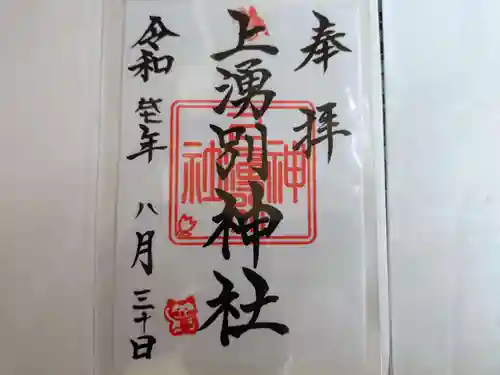 奉拝
上湧別神社
令和 年 八月 三十日
神
社